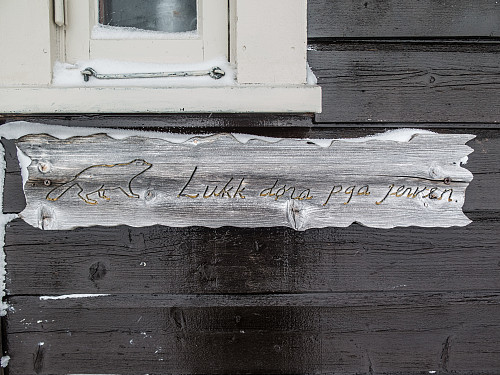 Lukk døra pga jerven.